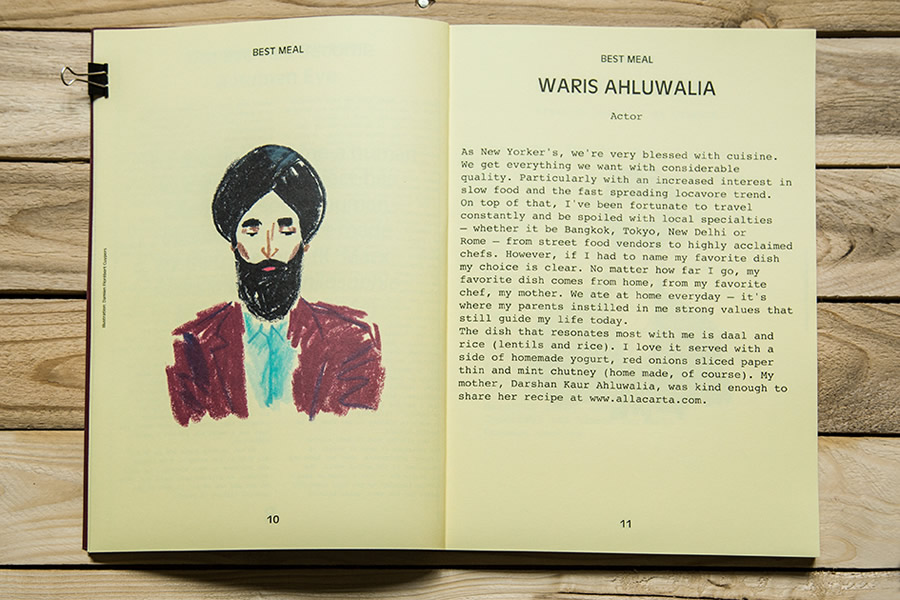 BEST MEAL
Illustration: Damien Florébert Cuypers
10
BEST MEAL
WARIS AHLUWALIA
Actor
As New Yorker's, we're very blessed with cuisine.
We get everything we want with considerable
quality. Particularly with an increased interest in
slow food and the fast spreading locavore trend.
On top of that, I've been fortunate to travel
constantly and be spoiled with local specialties
— whether it be Bangkok, Tokyo, New Delhi or
Rome — from street food vendors to highly acclaimed
chefs. However, if I had to name my favorite dish
my choice is clear. No matter how far I go, my
favorite dish comes from home, from my favorite
chef, my mother. We ate at home everyday — it's
where my parents instilled in me strong values that
still guide my life today.
The dish that resonates most with me is daal and
rice (lentils and rice). I love it served with a
side of homemade yogurt, red onions sliced paper
thin and mint chutney (home made, of course). My
mother, Darshan Kaur Ahluwalia, was kind enough to
share her recipe at www.allacarta.com.
11